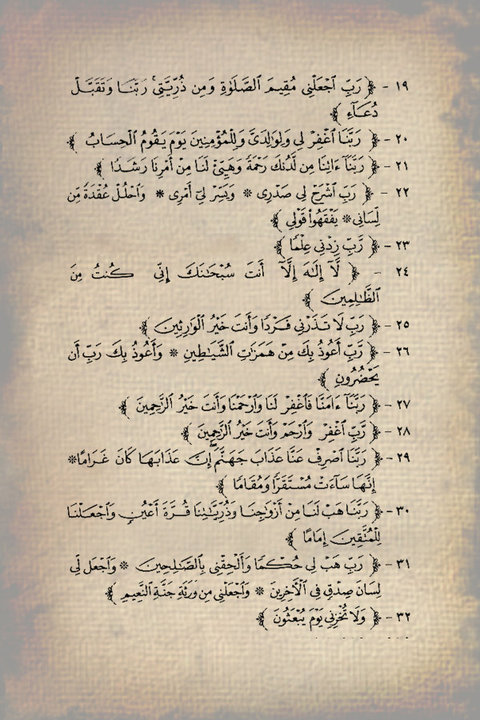 ١٩ - ﴿ رَبِّ ٱجْعَلْنِي مُقِيمَ ٱلصَّلَوٰةِ وَمِن ذُرِّيَّتِيۚ رَبَّنَا وَتَقَبَّلْ
دُعَآءِ ﴾
٢٠ - ﴿ رَبَّنَا ٱغْفِرْ لِي وَلِوَٰلِدَيَّ وَلِلْمُؤْمِنِينَ يَوْمَ يَقُومُ ٱلْحِسَابُ ﴾
٢١ - ﴿ رَبَّنَآ ءَاتِنَا مِن لَّدُنكَ رَحْمَةً وَهَيِّئْ لَنَا مِنْ أَمْرِنَا رَشَدًا ﴾
٢٢ - ﴿ رَبِّ ٱشْرَحْ لِي صَدْرِى * وَيَسِّرْ لِيٓ أَمْرِى * وَٱحْلُلْ عُقْدَةً مِّن
لِّسَانِى * يَفْقَهُوا۟ قَوْلِي ﴾
٢٣ - ﴿ رَّبِّ زِدْنِي عِلْمًا ﴾
٢٤ - ﴿ لَّآ إِلَٰهَ إِلَّآ أَنتَ سُبْحَٰنَكَ إِنِّى كُنتُ مِنَ
ٱلظَّٰلِمِينَ ﴾
٢٥ - ﴿ رَبِّ لَا تَذَرْنِي فَرْدًا وَأَنتَ خَيْرُ ٱلْوَٰرِثِينَ ﴾
٢٦ - ﴿ رَّبِّ أَعُوذُ بِكَ مِنْ هَمَزَٰتِ ٱلشَّيَٰطِينِ * وَأَعُوذُ بِكَ رَبِّ أَن
يَحْضُرُونِ ﴾
٢٧ - ﴿ رَبَّنَآ ءَامَنَّا فَٱغْفِرْ لَنَا وَٱرْحَمْنَا وَأَنتَ خَيْرُ ٱلرَّٰحِمِينَ ﴾
٢٨ - ﴿ رَّبِّ ٱغْفِرْ وَٱرْحَمْ وَأَنتَ خَيْرُ ٱلرَّٰحِمِينَ ﴾
٢٩ - ﴿ رَبَّنَا ٱصْرِفْ عَنَّا عَذَابَ جَهَنَّمَ إِنَّ عَذَابَهَا كَانَ غَرَامًا *
إِنَّهَا سَآءَتْ مُسْتَقَرًّا وَمُقَامًا ﴾
٣٠ - ﴿ رَبَّنَا هَبْ لَنَا مِنْ أَزْوَٰجِنَا وَذُرِّيَّٰتِنَا قُرَّةَ أَعْيُنٍ وَٱجْعَلْنَا
لِلْمُتَّقِينَ إِمَامًا ﴾
٣١ - ﴿ رَبِّ هَبْ لِي حُكْمًا وَأَلْحِقْنِي بِٱلصَّٰلِحِينَ * وَٱجْعَل لِّى
لِسَانَ صِدْقٍ فِي ٱلْأَخِرِينَ * وَٱجْعَلْنِي مِن وَرَثَةِ جَنَّةِ ٱلنَّعِيمِ ﴾
٣٢ - ﴿ وَلَا تُخْزِنِي يَوْمَ يُبْعَثُونَ ﴾